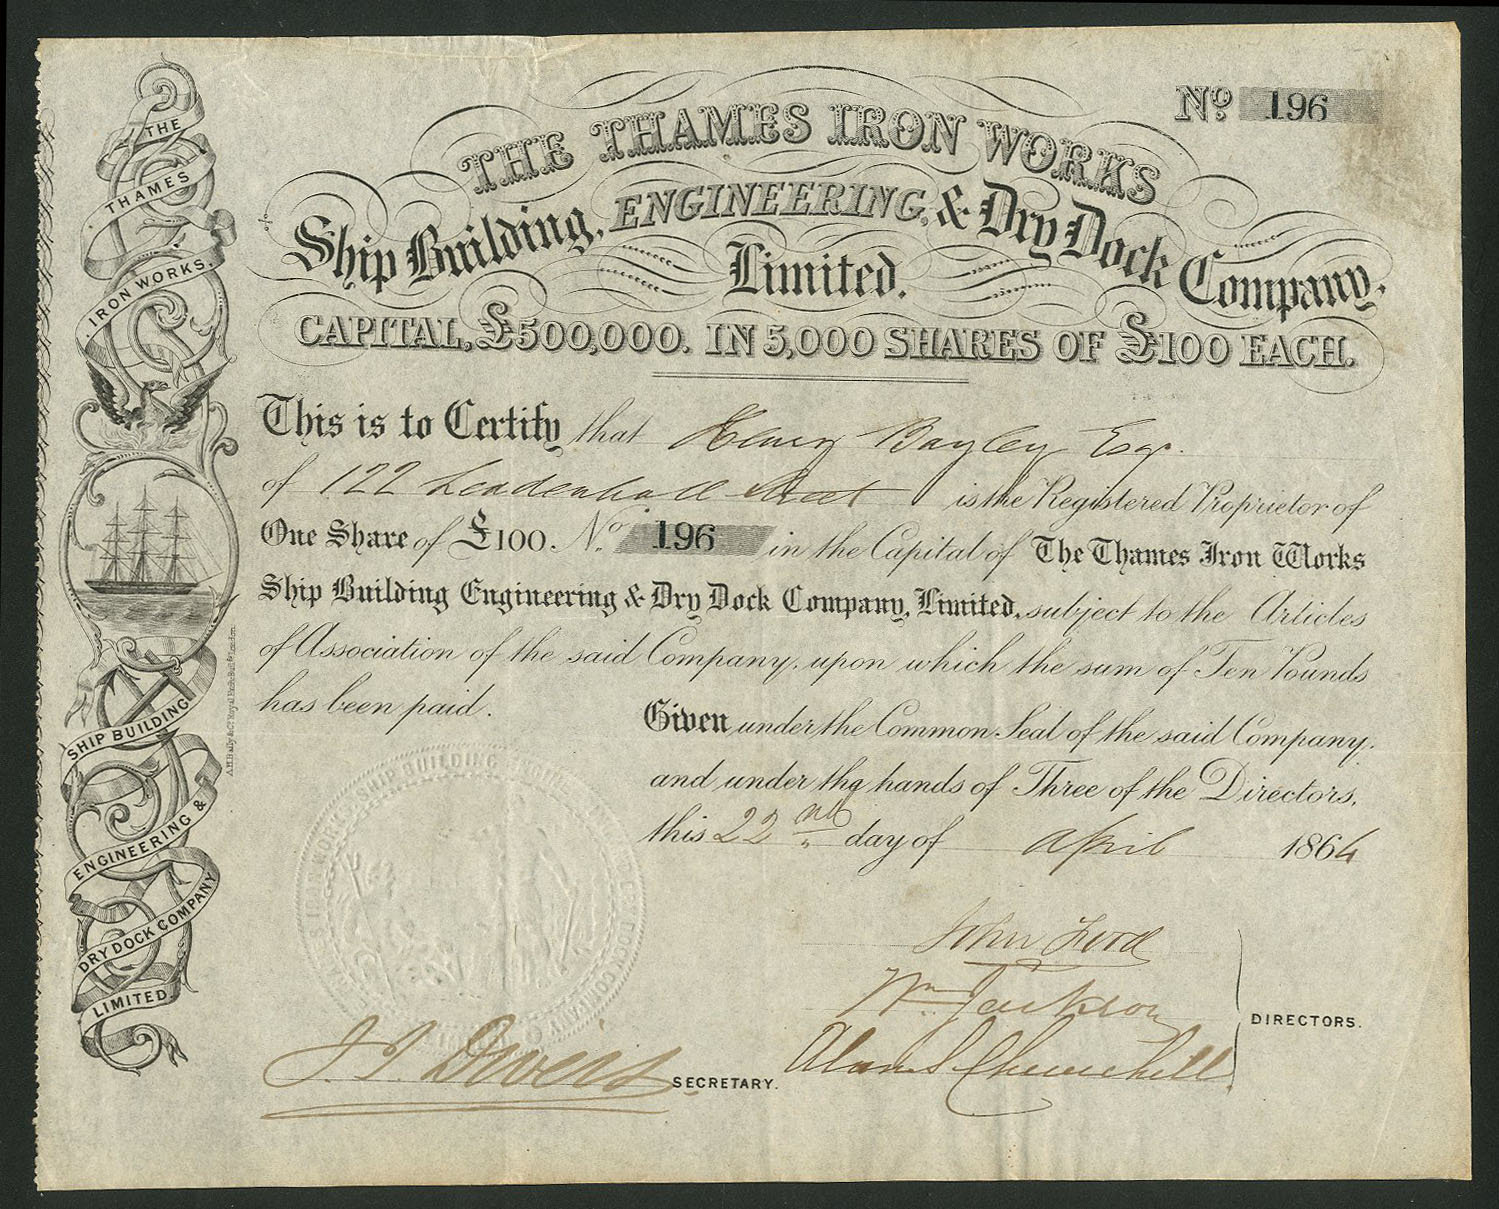 No. 196
THE THAMES IRON WORKS
Ship Building, ENGINEERING, & Dry Dock Company,
Limited.
CAPITAL, £500,000. IN 5,000 SHARES OF £100 EACH.
This is to Certify that Henry Bayley Esqr.
of 122 Leadenhall Street is the Registered Proprietor of
One Share of £100. No. 196 in the Capital of The Thames Iron Works
Ship Building Engineering & Dry Dock Company, Limited, subject to the Articles
of Association of the said Company, upon which the sum of Ten Pounds
has been paid.
Given under the Common Seal of the said Company,
and under the hands of Three of the Directors,
this 22nd day of April 1864
John Ford
Wm Jackson
Churchill
DIRECTORS.
SECRETARY.
THE
THAMES
IRON WORKS.
SHIP BUILDING
ENGINEERING &
DRY DOCK COMPANY
LIMITED
London.
IRON WORKS SHIP BUILDING ENGINEERING DRY DOCK COMPANY